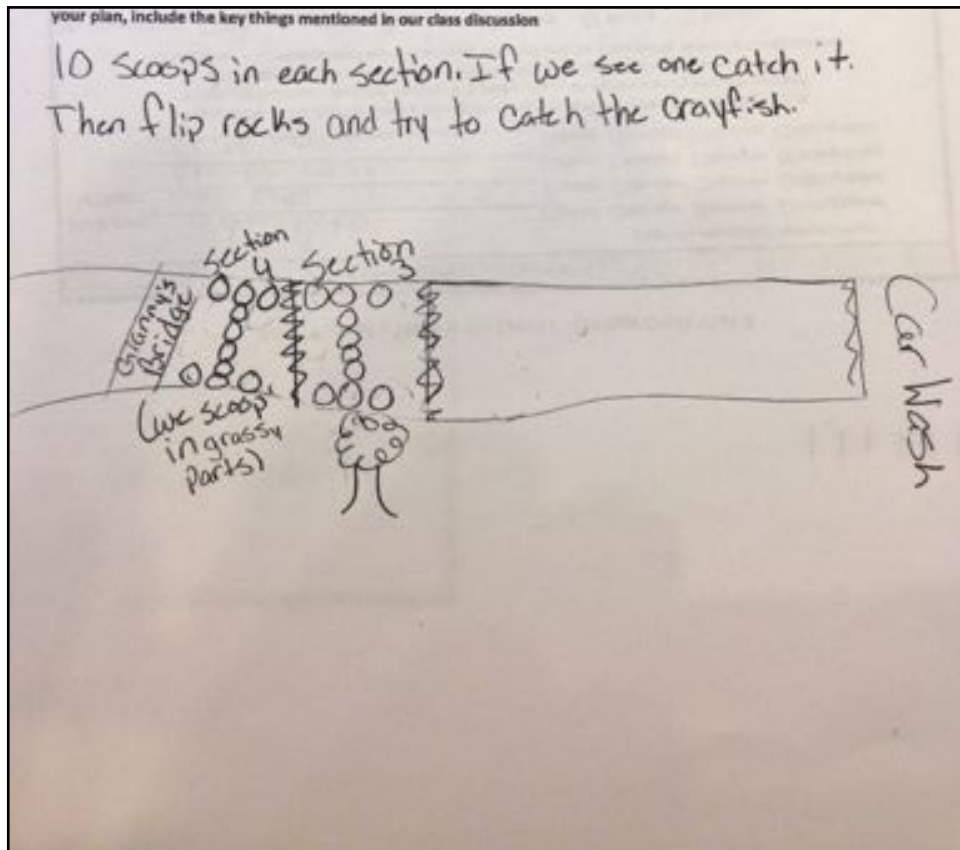 your plan, include the key things mentioned in our class discussion
10 scoops in each section. If we see one catch it.
Then flip rocks and try to catch the crayfish.
Section
4
Section
3
Granny's
Bridge
(we scoop
in grassy
parts)
Car Wash